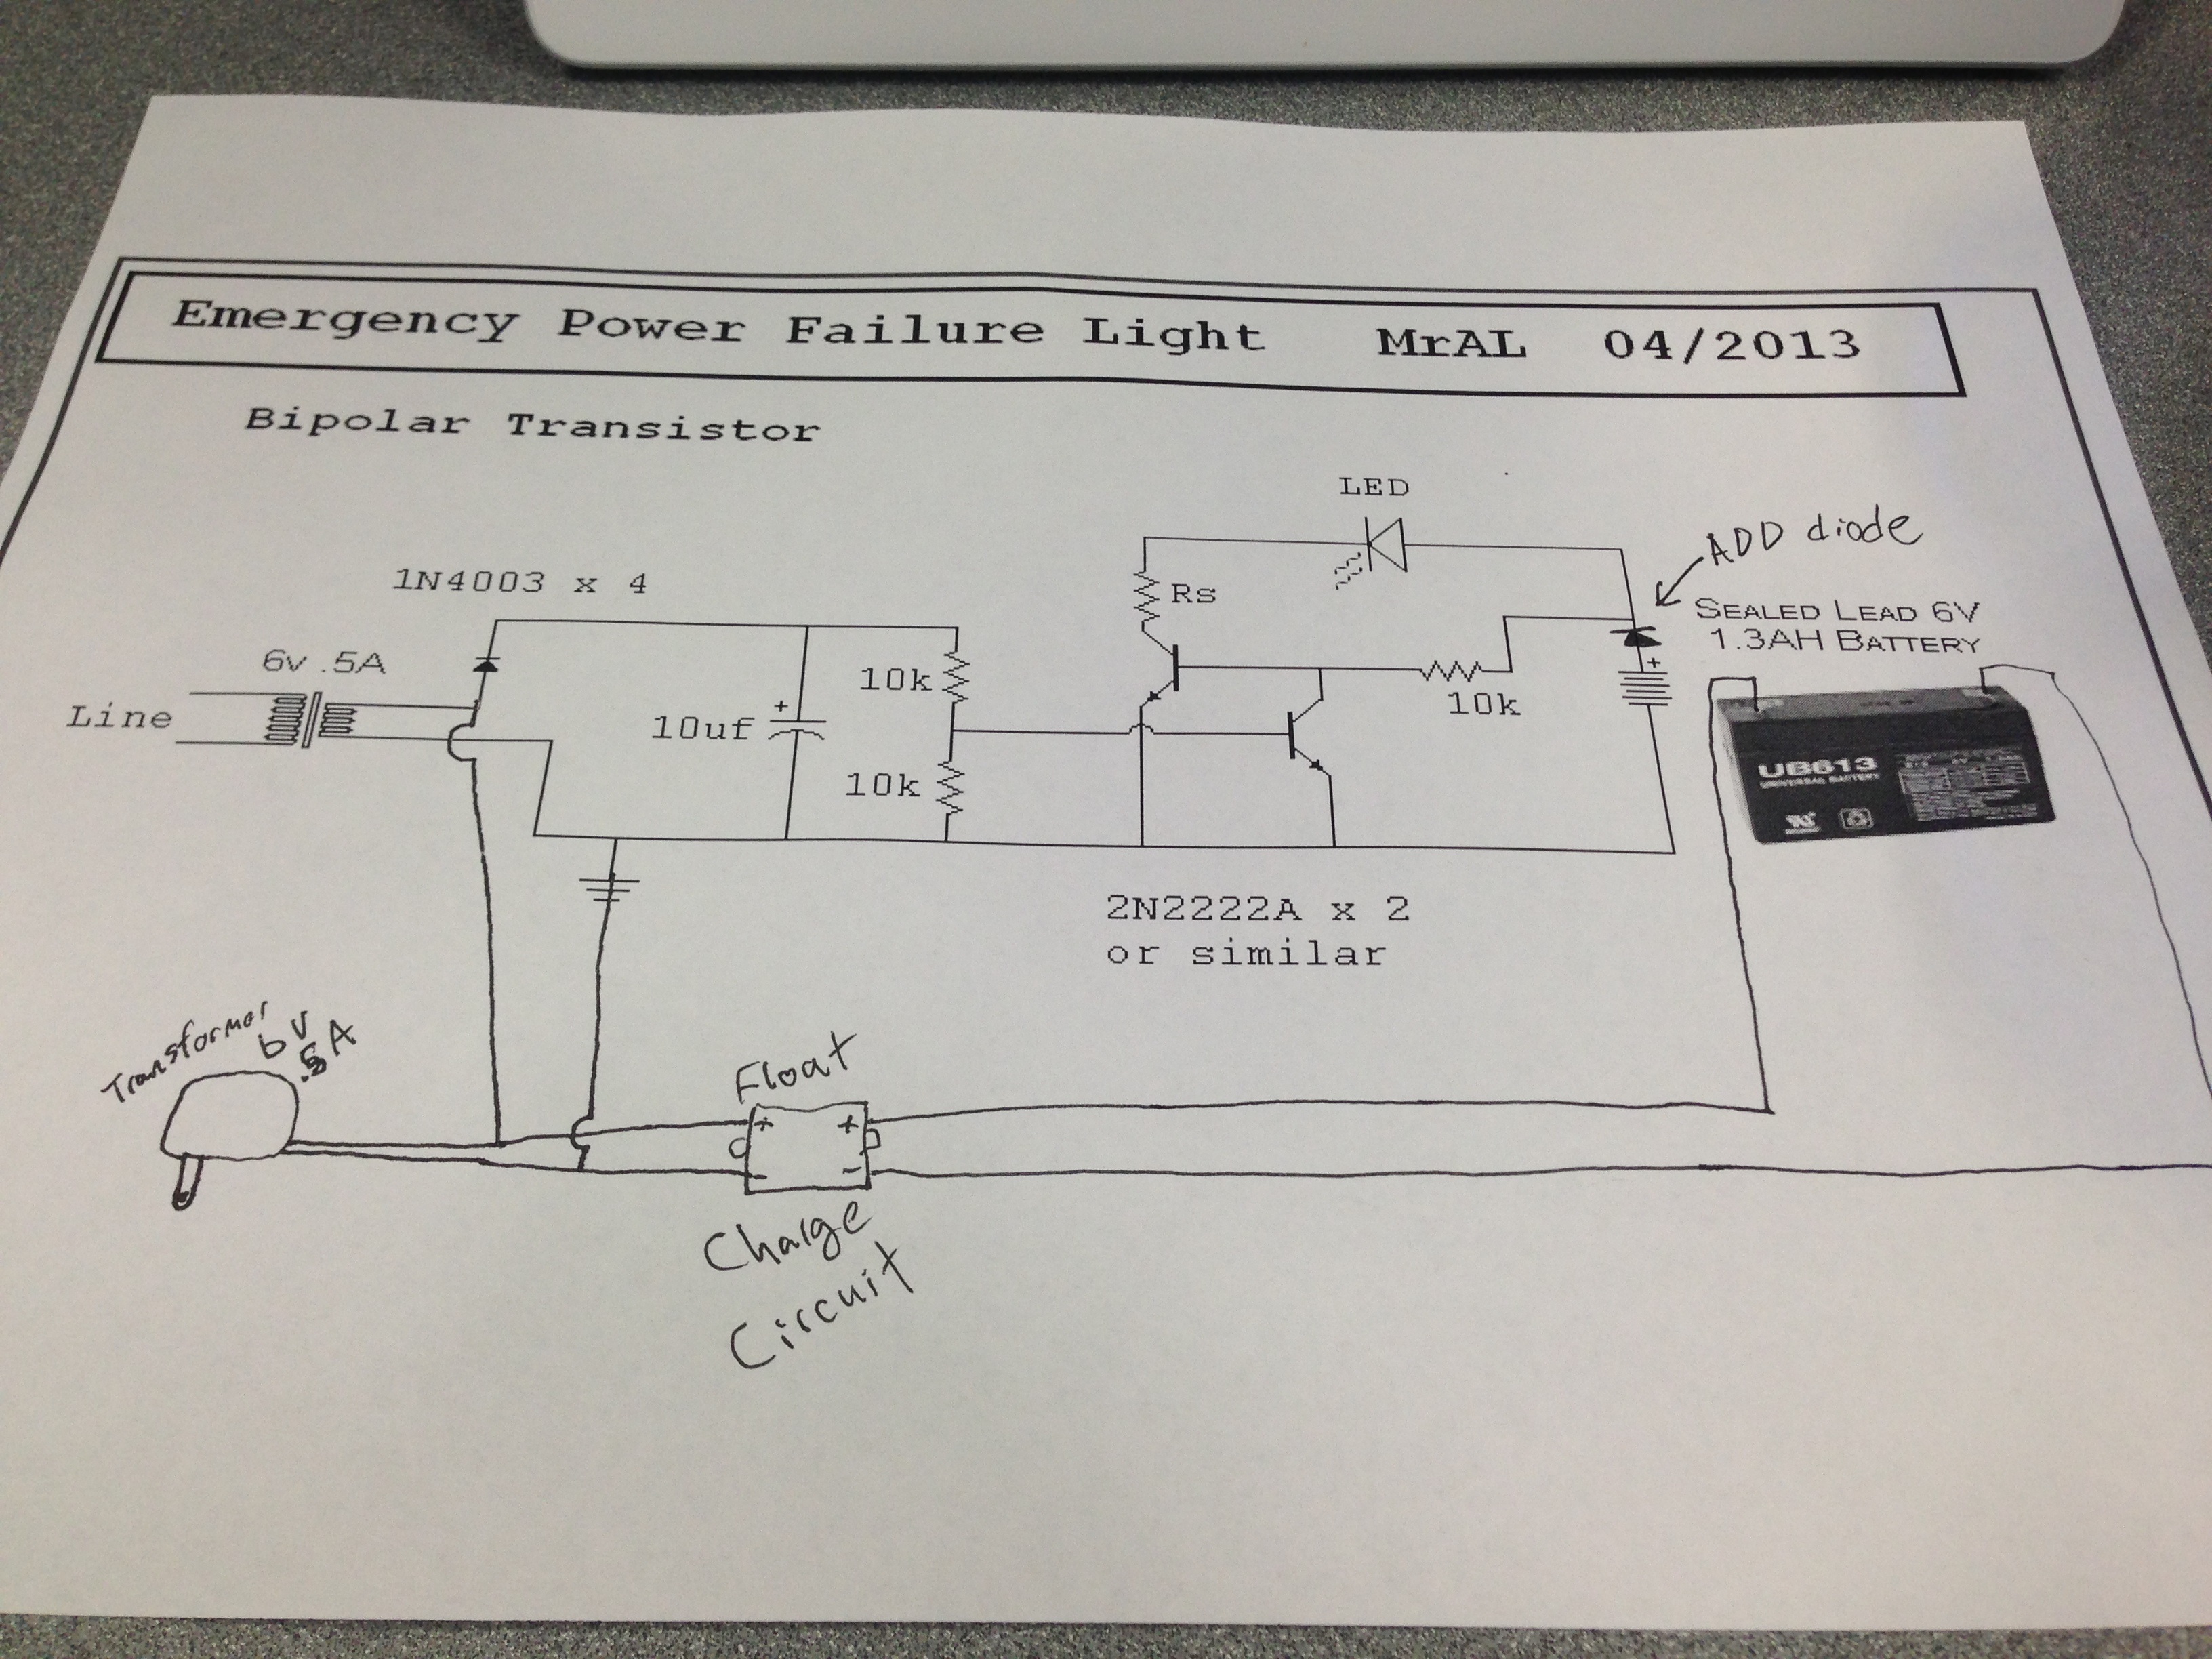 Emergency Power Failure Light MrAL 04/2013
Bipolar Transistor
LED
ADD diode
1N4003 x 4
Rs
SEALED LEAD 6V
1.3AH BATTERY
6v .5A
Line
10k
+
10uf
10k
10k
+
UB613
UNIVERSAL BATTERY
2N2222A x 2
or similar
Transformer
6V
.5A
Float
+ +
- -
Charge
Circuit